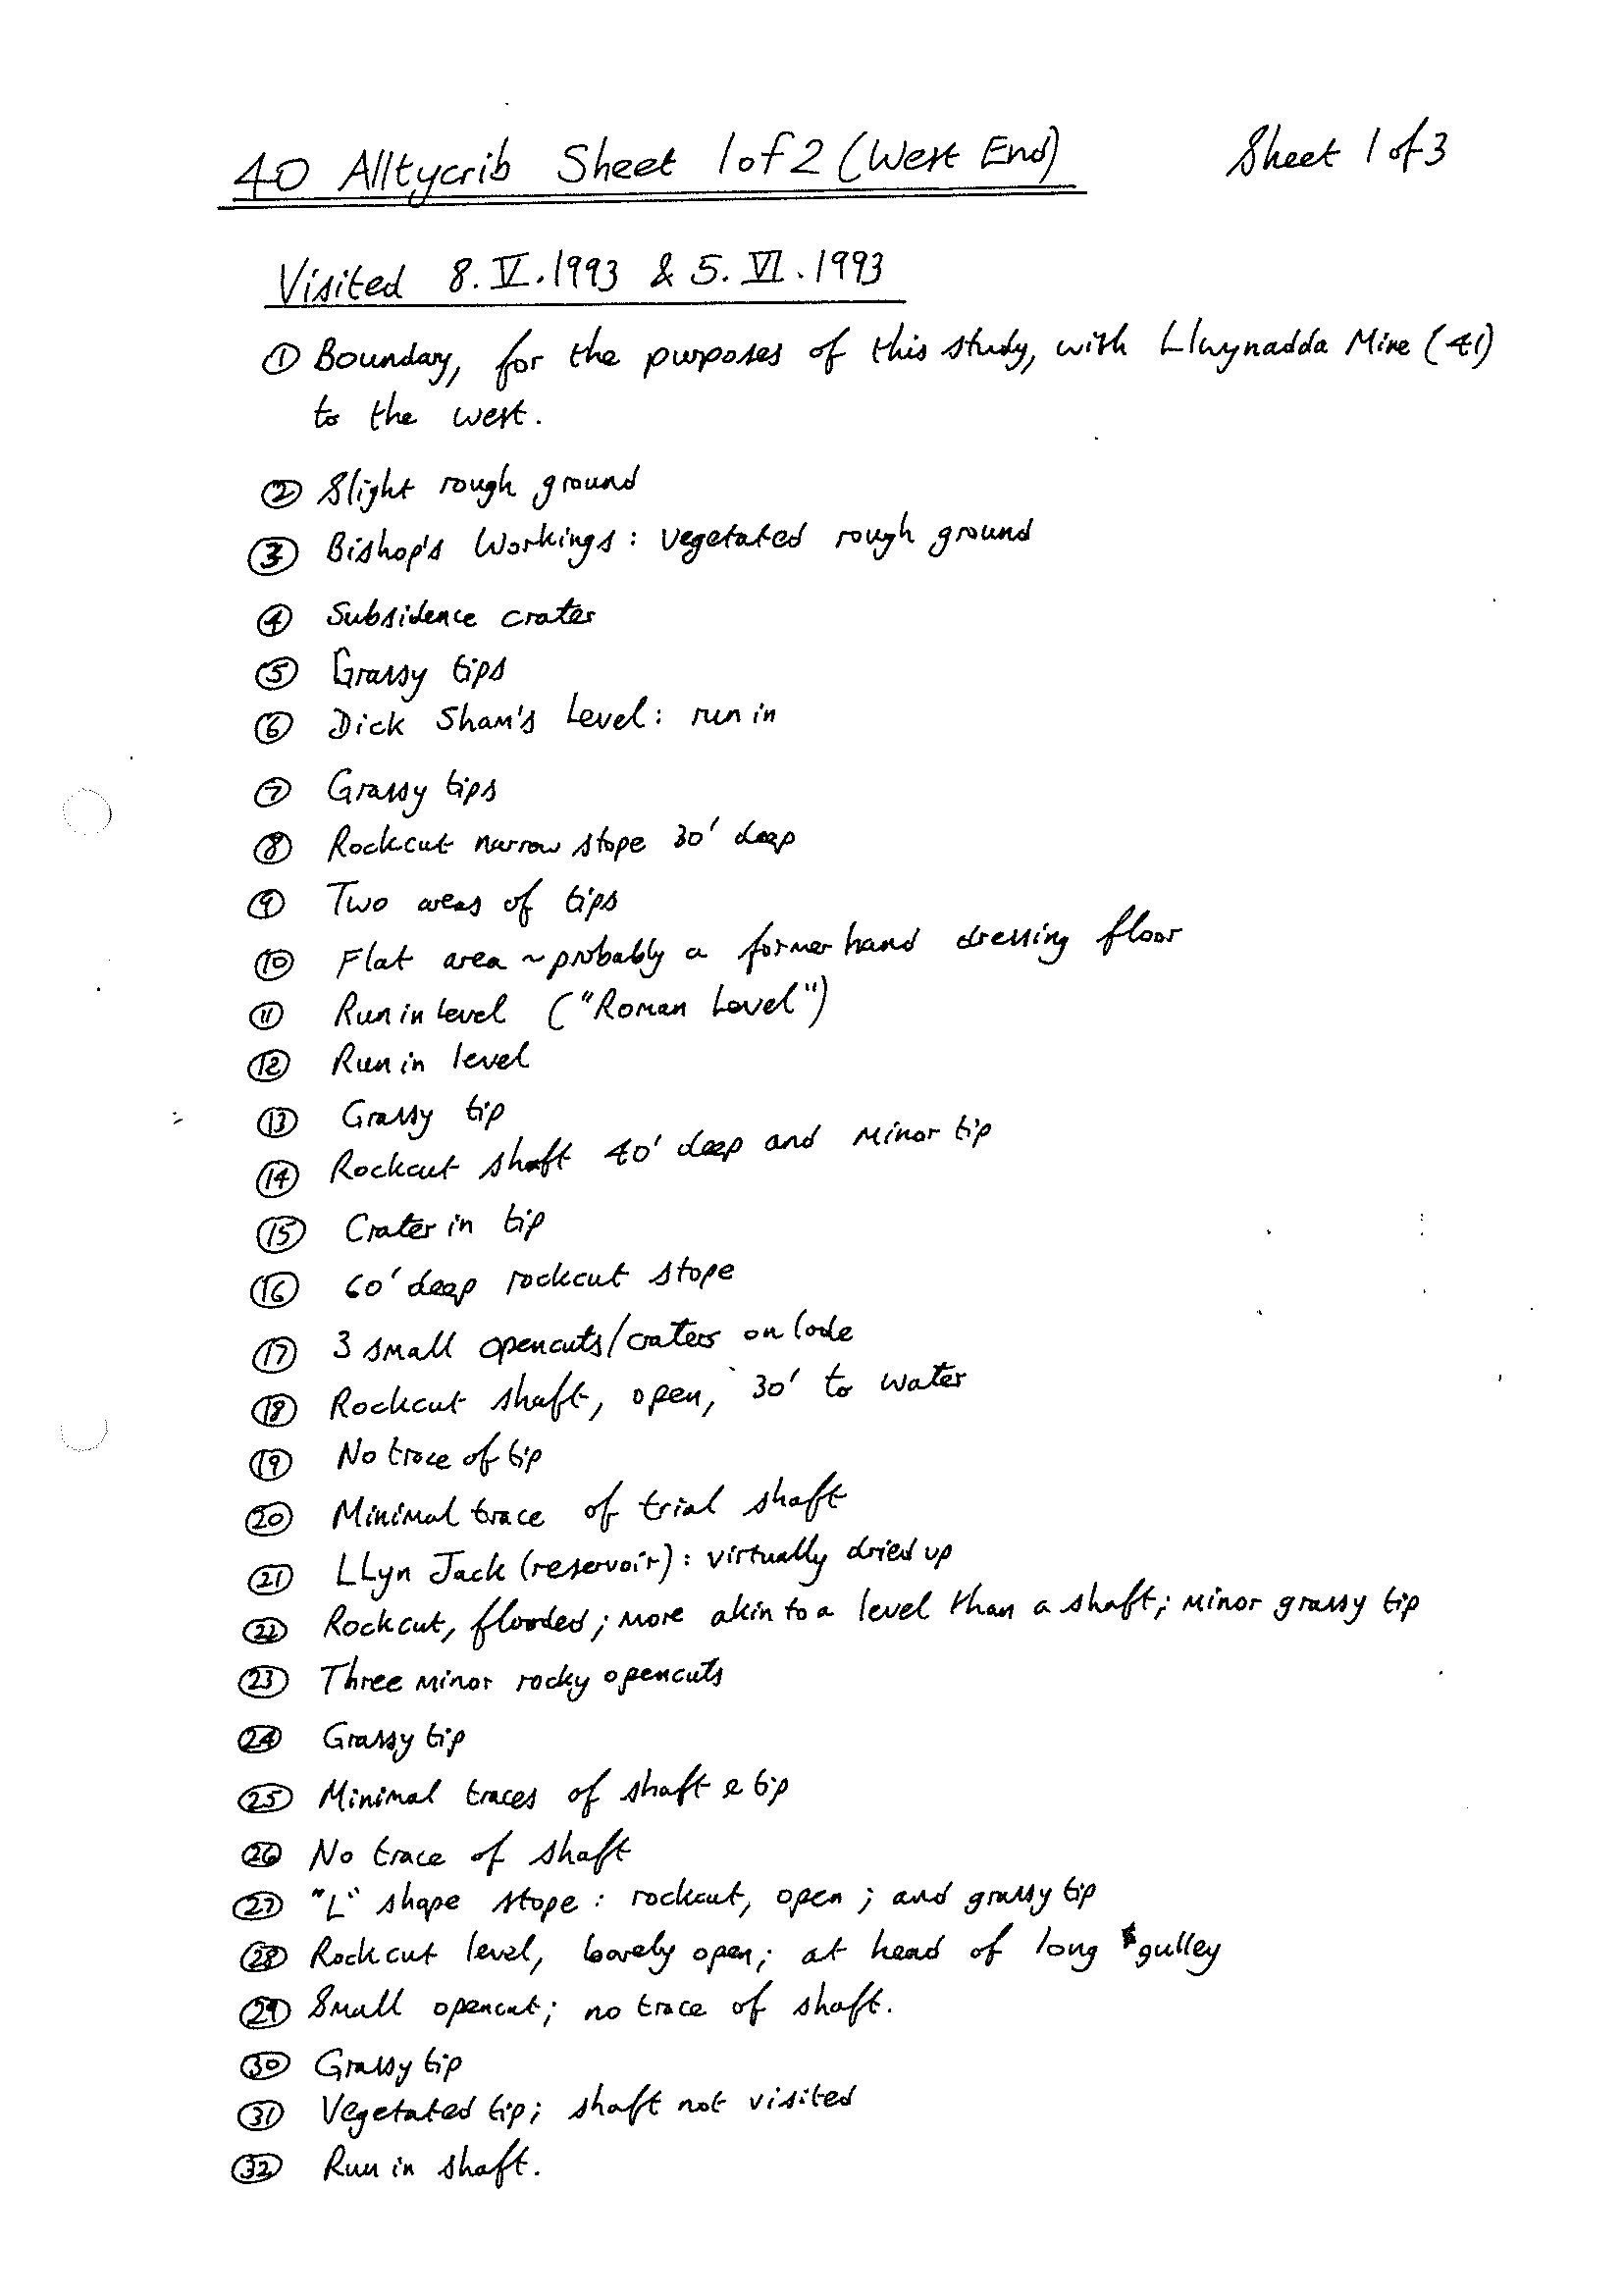 40 Alltycrib Sheet 1 of 2 (West End) Sheet 1 of 3
Visited 8.V.1993 & 5.VI.1993
① Boundary, for the purposes of this study, with Llwynadda Mine (41)
to the west.
② Slight rough ground
③ Bishop's Workings: vegetated rough ground
④ Subsidence crater
⑤ Grassy tips
⑥ Dick Sham's Level: run in
⑦ Grassy tips
⑧ Rockcut narrow stope 30' deep
⑨ Two areas of tips
⑩ Flat area ~ probably a former hand dressing floor
⑪ Run in level ("Roman Level")
⑫ Run in level
⑬ Grassy tip
⑭ Rockcut shaft 40' deep and minor tip
⑮ Crater in tip
⑯ 60' deep rockcut stope
⑰ 3 small opencuts/craters on lode
⑱ Rockcut shaft, open, 30' to water
⑲ No trace of tip
⑳ Minimal trace of trial shaft
㉑ LLyn Jack (reservoir): virtually dried up
㉒ Rockcut, flooded; more akin to a level than a shaft; minor grassy tip
㉓ Three minor rocky opencuts
㉔ Grassy tip
㉕ Minimal traces of shaft & tip
㉖ No trace of shaft
㉗ "L" shape stope: rockcut, open; and grassy tip
㉘ Rockcut level, barely open; at head of long gulley
㉙ Small opencut; no trace of shaft.
㉚ Grassy tip
㉛ Vegetated tip; shaft not visited
㉜ Run in shaft.